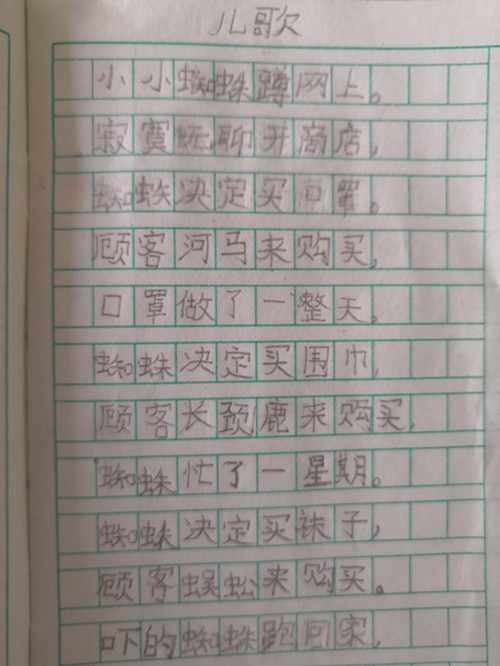 儿歌
小小蜘蛛蹲网上。
寂寞无聊开商店,
蜘蛛决定买口罩。
顾客河马来购买,
口罩做了一整天。
蜘蛛决定买围巾,
顾客长颈鹿来购买,
蜘蛛忙了一星期。
蜘蛛决定买袜子,
顾客蜈蚣来购买。
吓的蜘蛛跑回家,